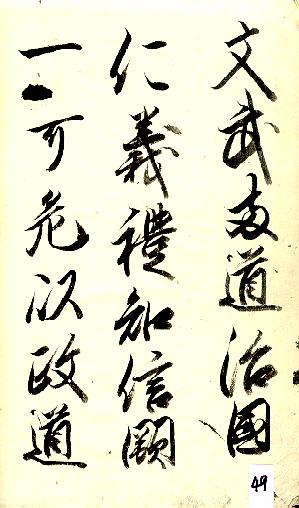 文武両道治國
仁義禮知信闕
一可危以政道
49